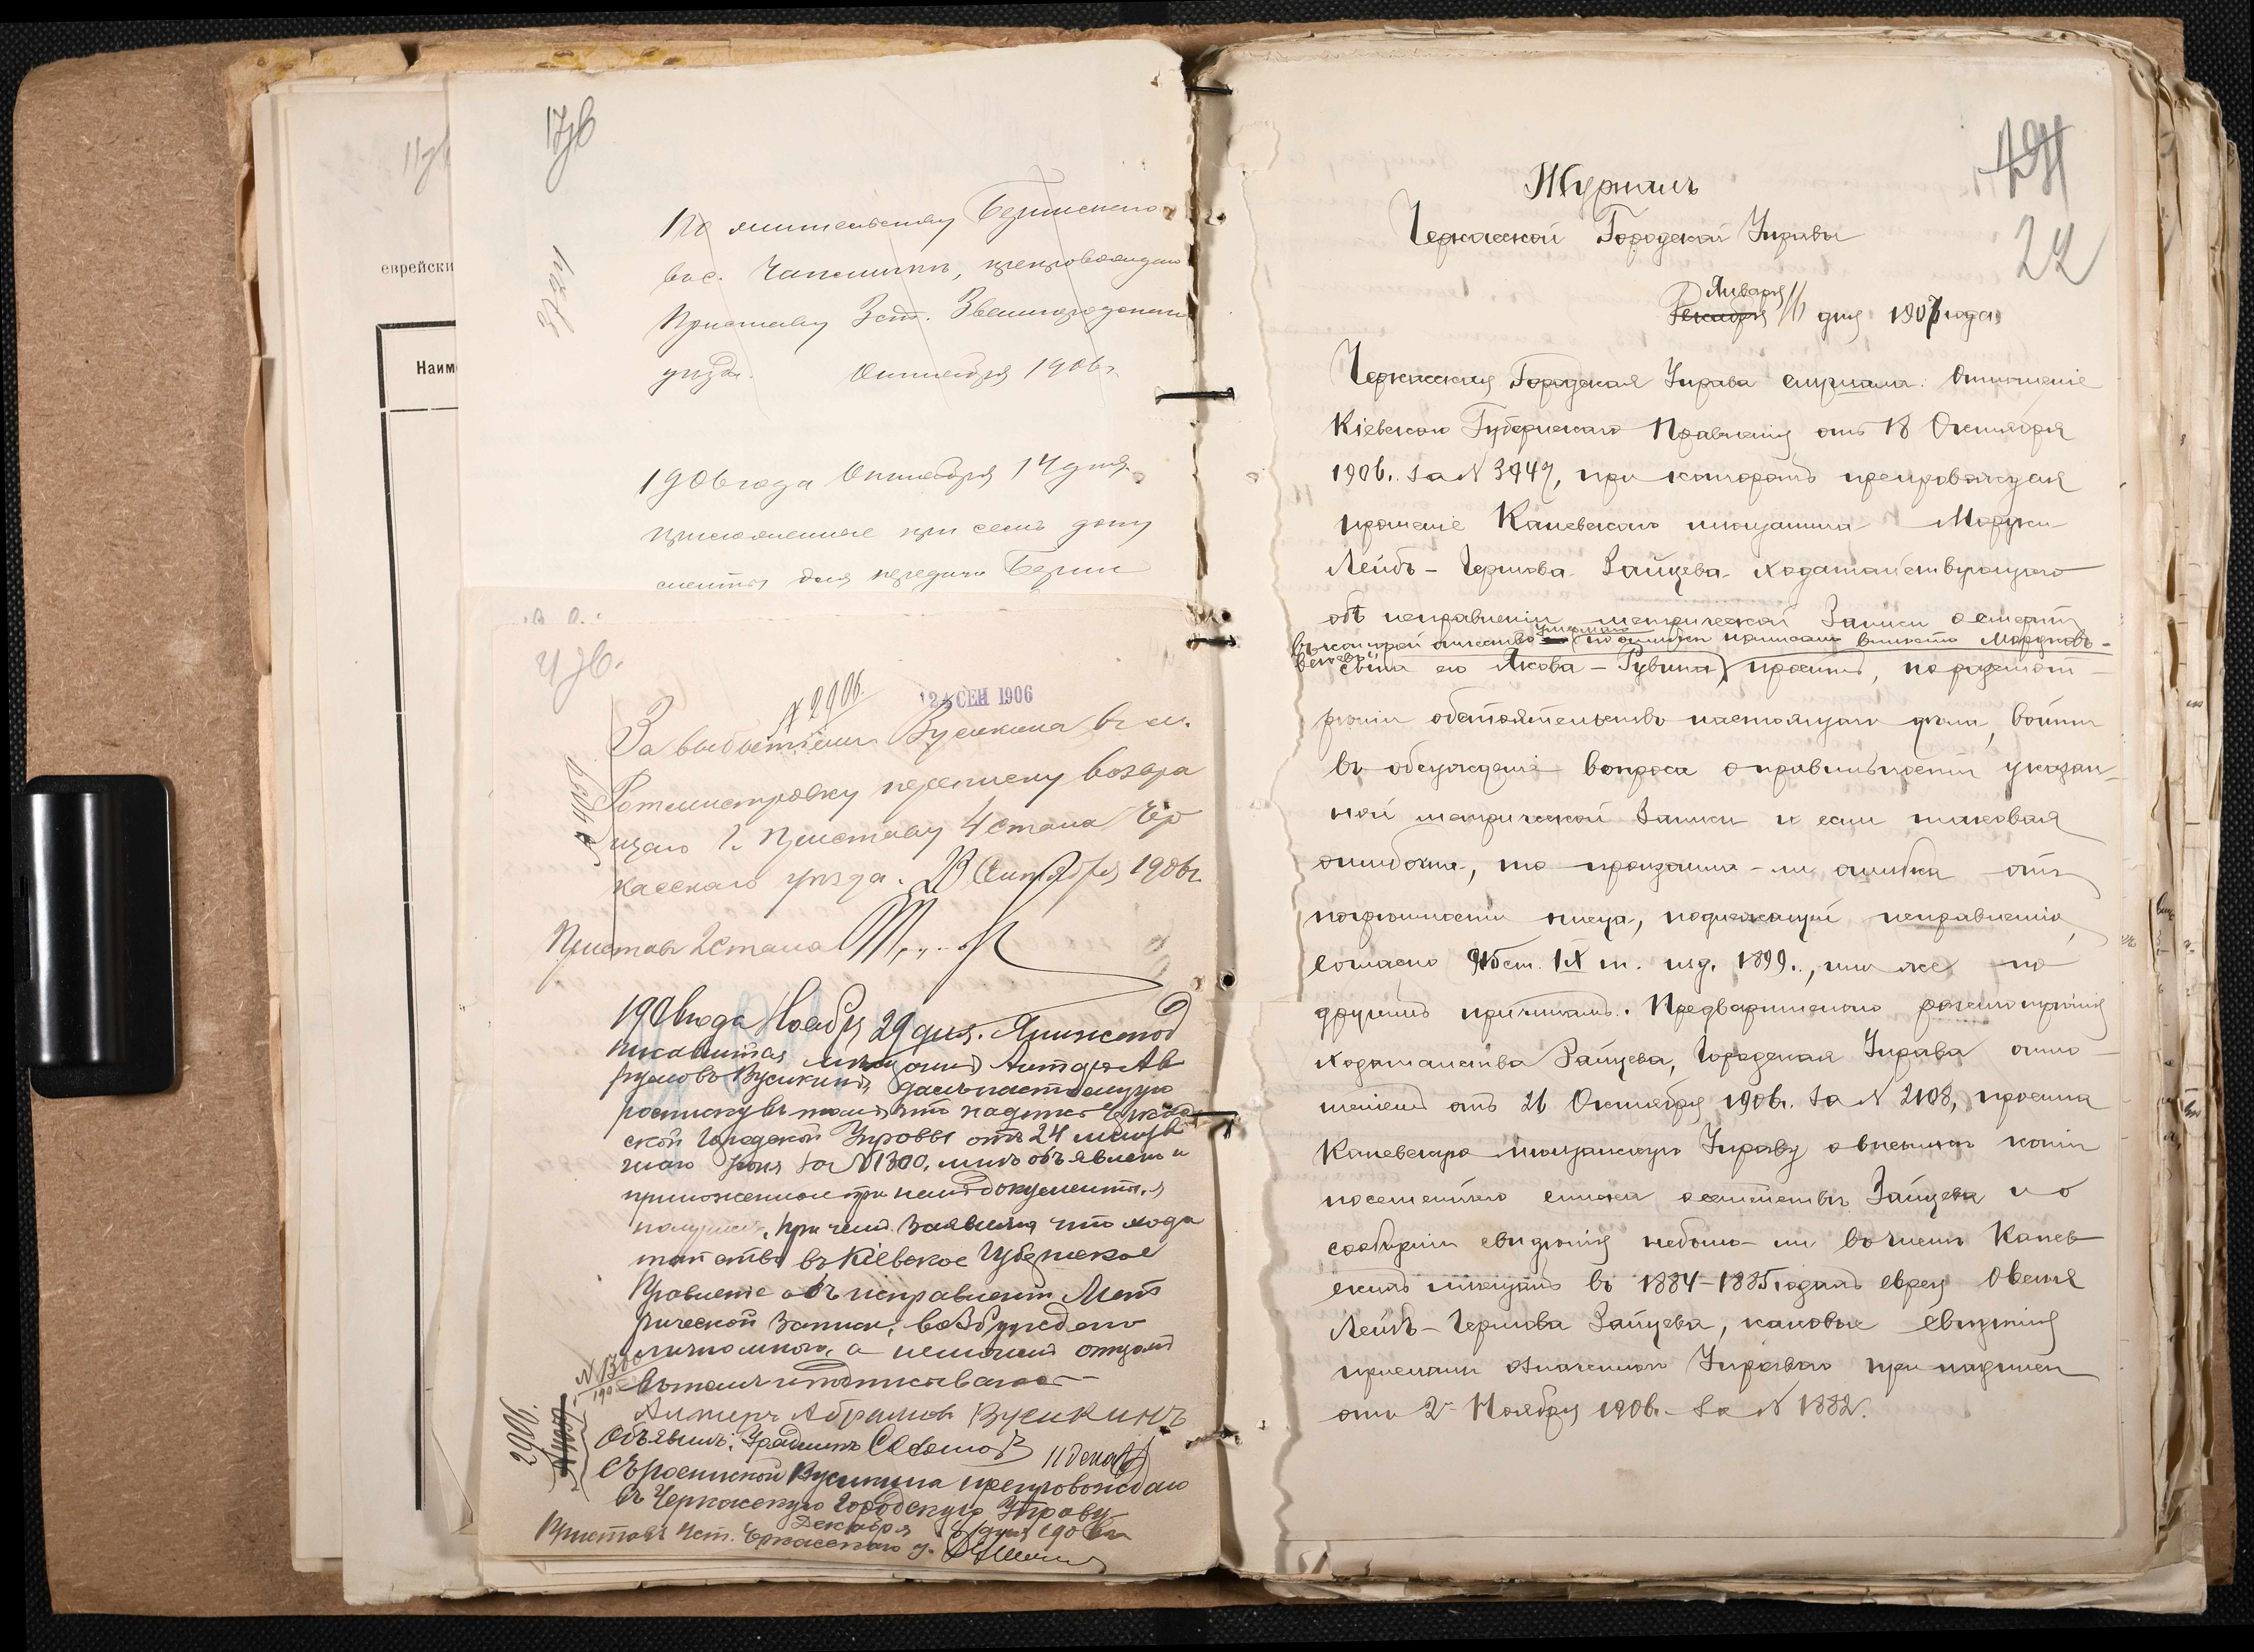 17зв
3724
По жительству Бершенкго
въ с. Чапли, препровождаю
Приставу 3 ст. Звенигородскаго
уѣзда. Октября 1906 г.
1906 года Октября 14 дня.
приложенные при семъ доку
менты для передачи
еврейски
Наим
4 зв.
№ 2906.
24 СЕН 1906
За выбытіемъ Вусикина въ м.
Ротмистровку переписку возвра
щаю Г. Приставу 4 стана Чер
касскаго уѣзда. 23 Сентября 1906 г.
№ 4059
Приставъ 2 стана
1906 года Ноября 29 дня. Я нижепод
писавшійся мѣщанинъ Ав
румовъ Вусикинъ, далъ настоящую
росписку въ томъ, что надпись Черкас
ской Городской Управы отъ 24 минув
шаго за № 1300, мнѣ объявлена и
приложенные при ней документы, я
получилъ, при чемъ заявляю что хода
тайство въ Кіевское Губернское
Правленіе объ исправленіи Мет
рической Записи, возбуждено
лично мною, а не моимъ отцомъ
въ томъ и подписываюсь
№ 1300
190
Абрамов Вусикинъ
Объявилъ: Урядникъ
11 декаб
2906.
№ 4059
Съ роспиской Вусикина препровождаю
въ Черкасскую Городскую Управу
Декабря 1906 г.
Приставъ 4 ст. Черкасскаго у.
22
Журналъ
Черкасской Городской Управы
Января
Декабря 16 дня 1907 года
Черкасская Городская Управа слушала: Отношеніе
Кіевскаго Губернскаго Правленія отъ 18 Октября
1906 г. за № 3947, при которомъ препровождая
прошеніе Каневскаго мѣщанина Мордка-
Лейбъ-Гершкова Зайцева ходатайствующаго
объ исправленіи метрической Записи о смерти
въ которой отчество умершаго по ошибкѣ написано вмѣсто Мордковъ-
сына его Якова-Рувина) проситъ, по разсмот-
рѣніи обстоятельствъ настоящаго дѣла, войти
въ обсужденіе вопроса о правильности указан-
ной метрической Записи и если таковая
ошибочна, то произошла-ли ошибка отъ
погрѣшности писца, подлежащей исправленію,
согласно ст. IX т. изд. 1899 г., или же по
другимъ причинамъ. Предварительно разсмотрѣнія
ходатайства Зайцева, Городская Управа отно-
шеніемъ отъ 26 Октября 1906 г. за № 2108, просила
Каневскую мѣщанскую Управу о высылкѣ копіи
посемейнаго списка о семействѣ Зайцева и о
сообщеніи свѣдѣнія не было-ли въ числѣ Канев-
скихъ мѣщанъ въ 1884-1885 годахъ еврея Овсея
Лейбъ-Гершкова Зайцева, каковые свѣдѣнія
присланы означенною Управою при надписи
отъ 2 Ноября 1906 г. за № 1882.